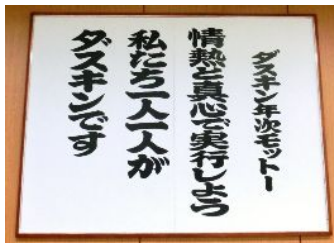 ダスキン年次モットー
情熱と真心で実行しよう
私たち一人一人が
ダスキンです